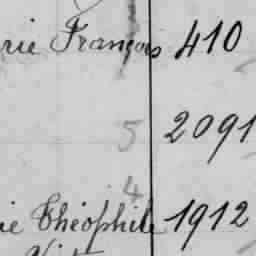 rie François 410
5 2091
4
ie Théophile 1912